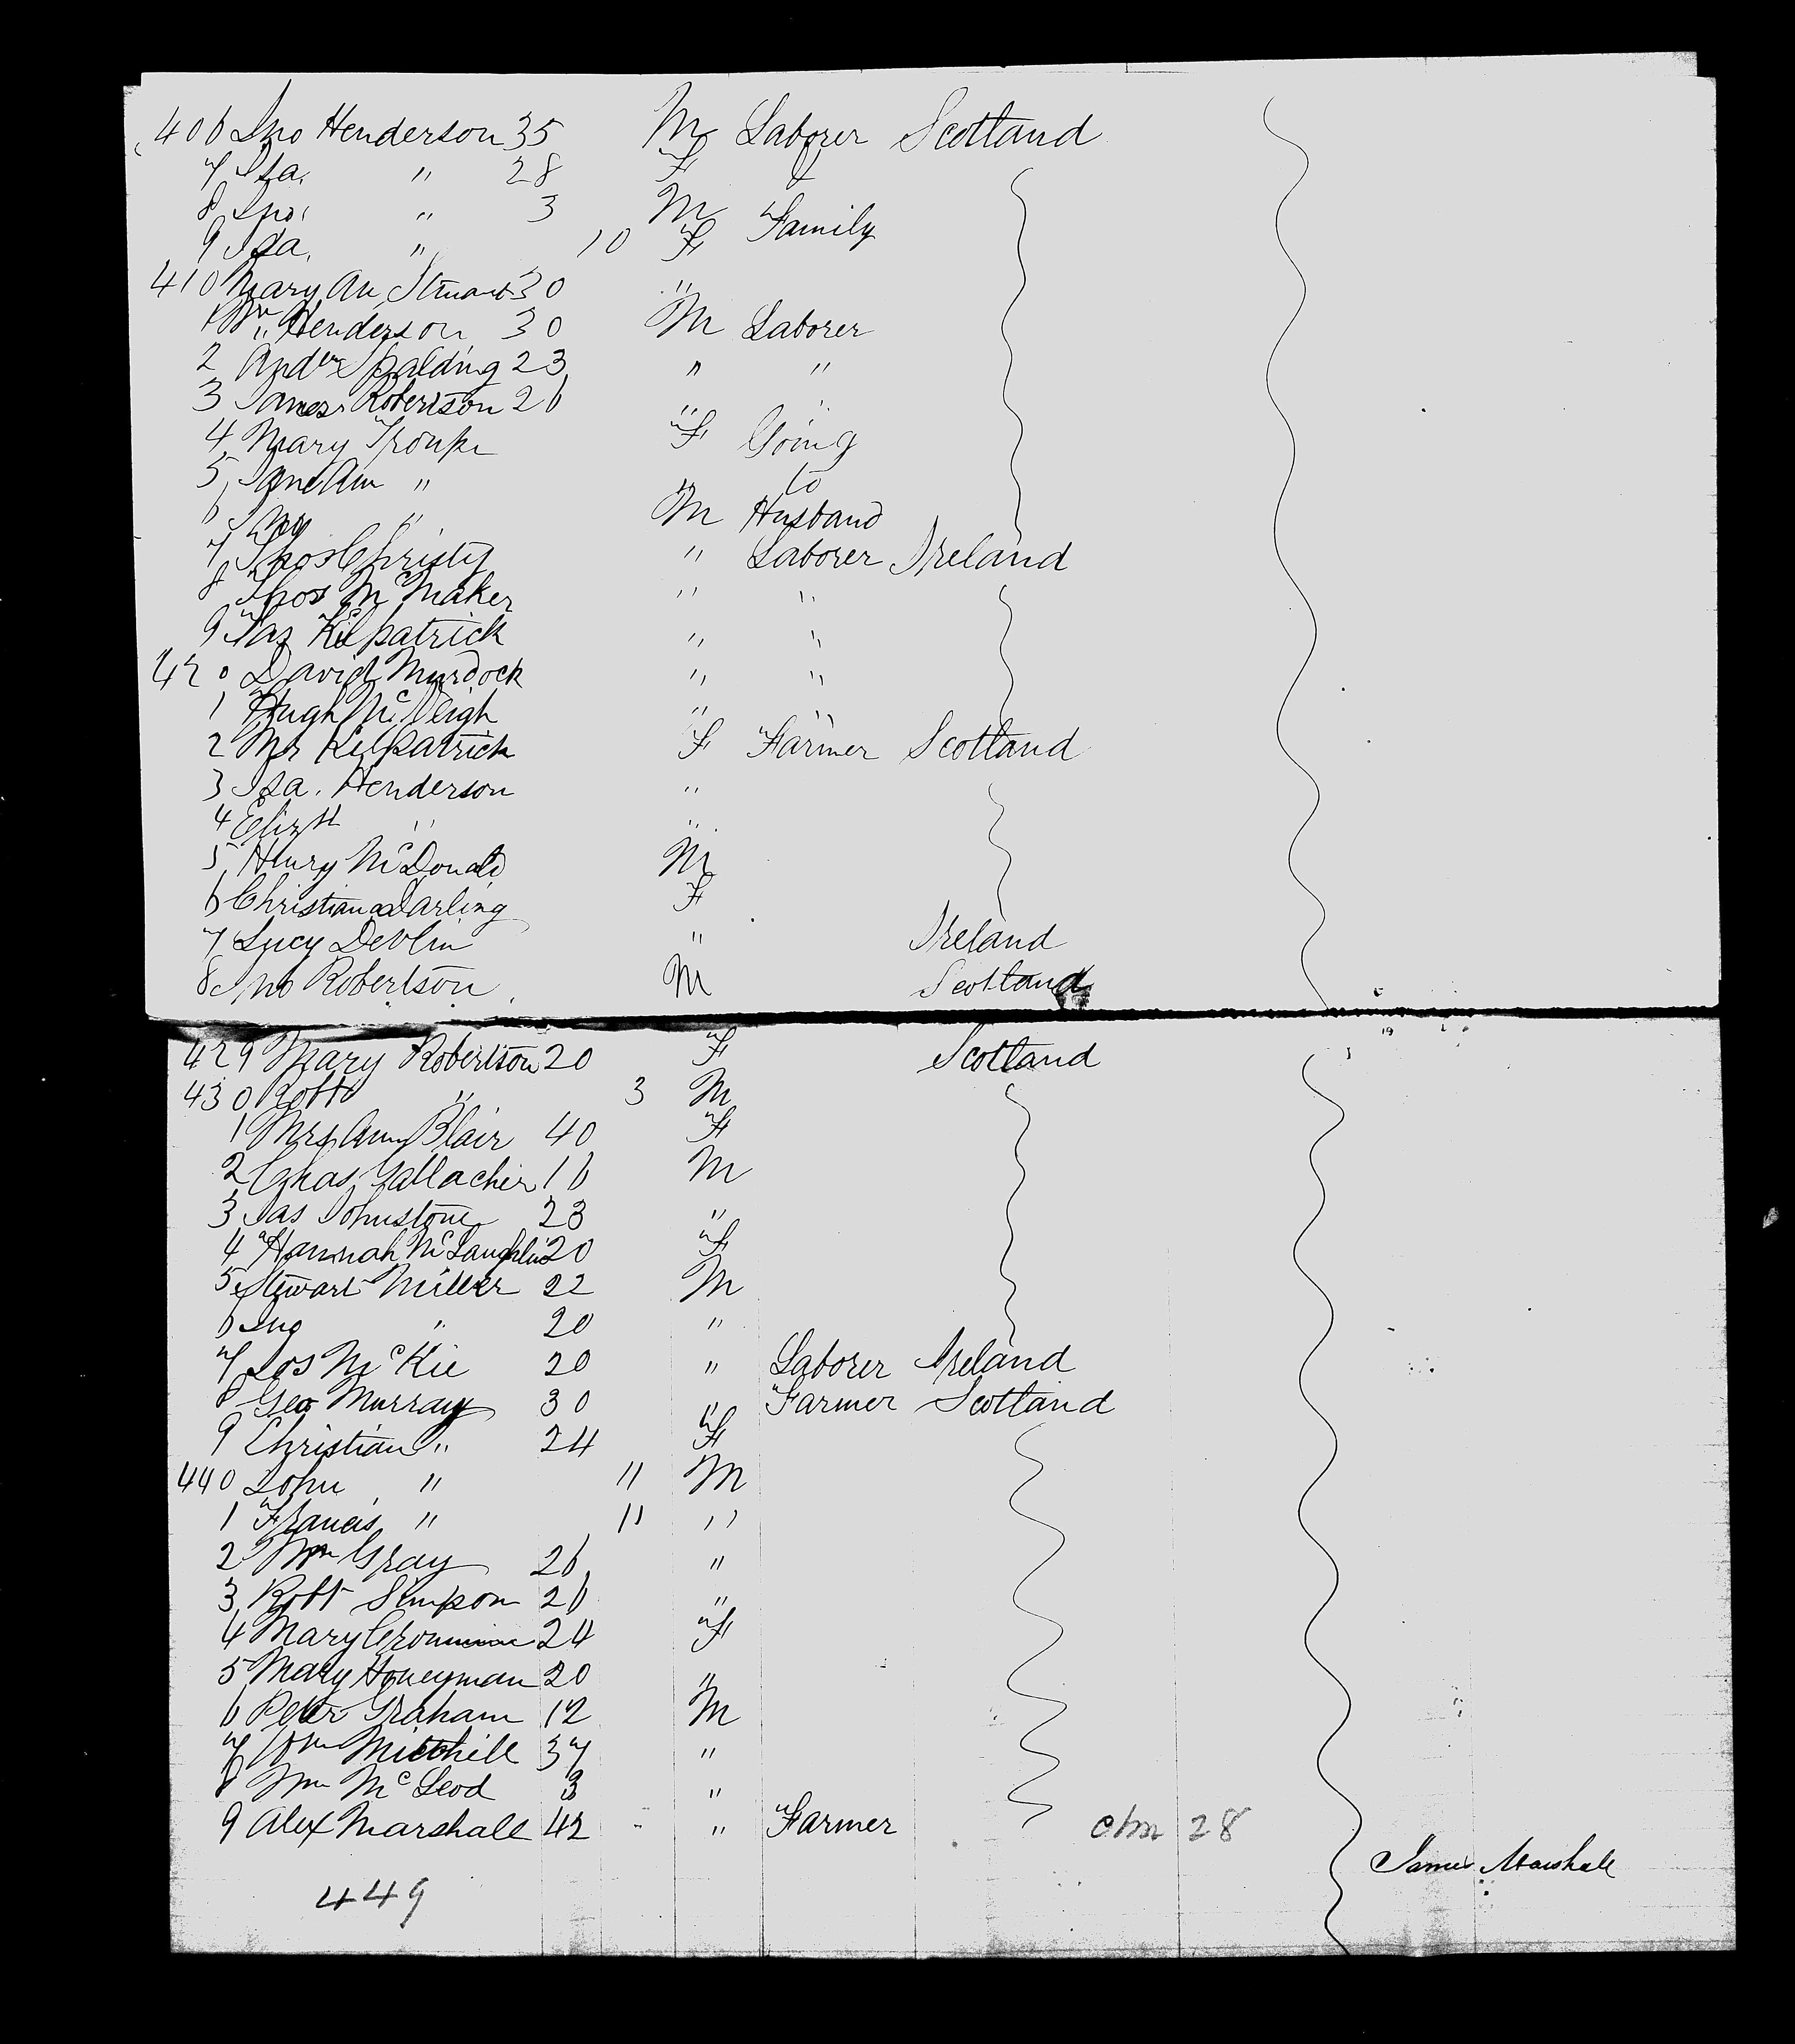 406 Jno Henderson 35 M Laborer Scotland
7 Isa. " 28 F &
8 Jno. " 3 M Family
9 Isa. " 10 F
410 Mary An Stuart 30 "
1 Wm Henderson 30 M Laborer
2 Andw Spalding 23 " "
3 James Robertson 26 " "
4 Mary Troup F Going
5 Jane Ann " " to
6 Jno " M Husband
7 Thos Christy " Laborer Ireland
8 Thos McMaker " "
9 Jas Kilpatrick " "
420 David Murdock " "
1 Hugh McVeigh " "
2 Mr Kilpatrick F Farmer Scotland
3 Isa. Henderson "
4 Elizth " "
5 Henry McDonald M
6 Christiana Darling F
7 Lucy Devlin " Ireland
8 Jno Robertson M Scotland
429 Mary Robertson 20 F Scotland
430 Robt " 3 M
1 Mrs Ann Blair 40 F
2 Chas Gallacher 16 M
3 Jas Johnstone 23 "
4 Hannah McLaughlin 20 F
5 Stewart Miller 22 M
6 Jno " 20 "
7 Jos McKie 20 " Laborer Ireland
8 Geo Murray 30 " Farmer Scotland
9 Christian " 24 F
440 John " 11 M
1 Francis " 11 "
2 Wm Gray 26 "
3 Robt Simpson 26 "
4 Mary 24 F
5 Mary Honeyman 20 "
6 Peter Graham 12 M
7 Wm Mitchell 37 "
8 Wm McLeod 3 "
9 Alex Marshall 42 " Farmer 28
James Marshall
449